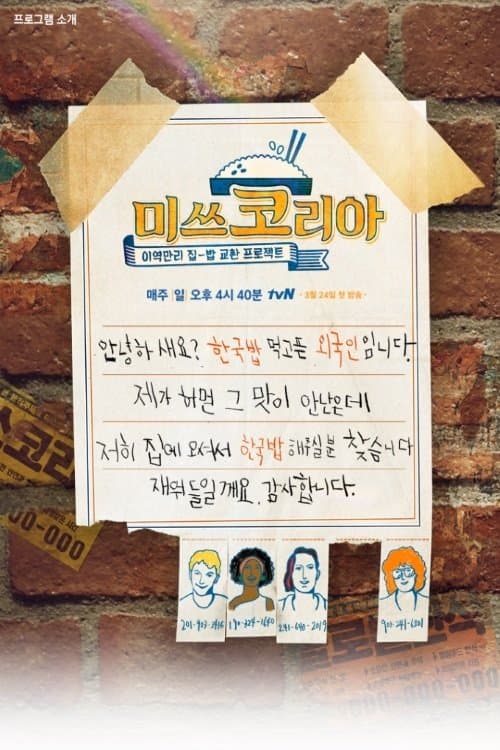 프로그램 소개
미쓰코리아
이역만리 집-밥 교환 프로젝트
매주 일 오후 4시 40분 tvN · 3월 24일 첫 방송 ·
안녕하새요? 한국밥 먹고픈 외국인 임니다.
제가 하면 그 맛이 안난은데
저희 집에 모셔서 한국밥 해주실분 찾슴니다
재워 들일게요. 감사합니다.
쓰코리
00-000
201-903-2416 180-324-1640 241-640-2019 903-241-6201
000-0000-000